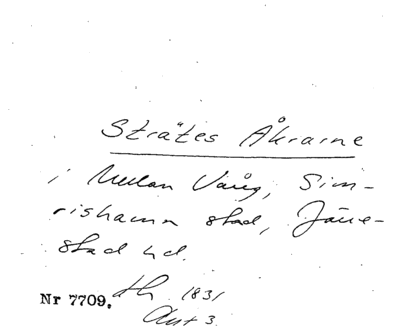 Strätes Åkrarne
i Mellan Vång, Sim-
rishamn stad, Järre-
stad hd.
Nr 7709. Lh 1831
Akt 3.